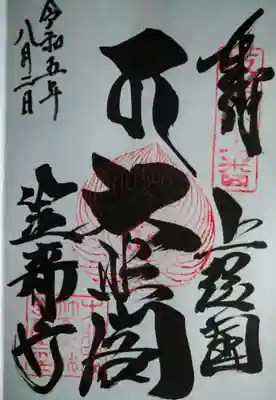 奉拝
上総国
大悲閣
笠森寺
令和五年
八月二日